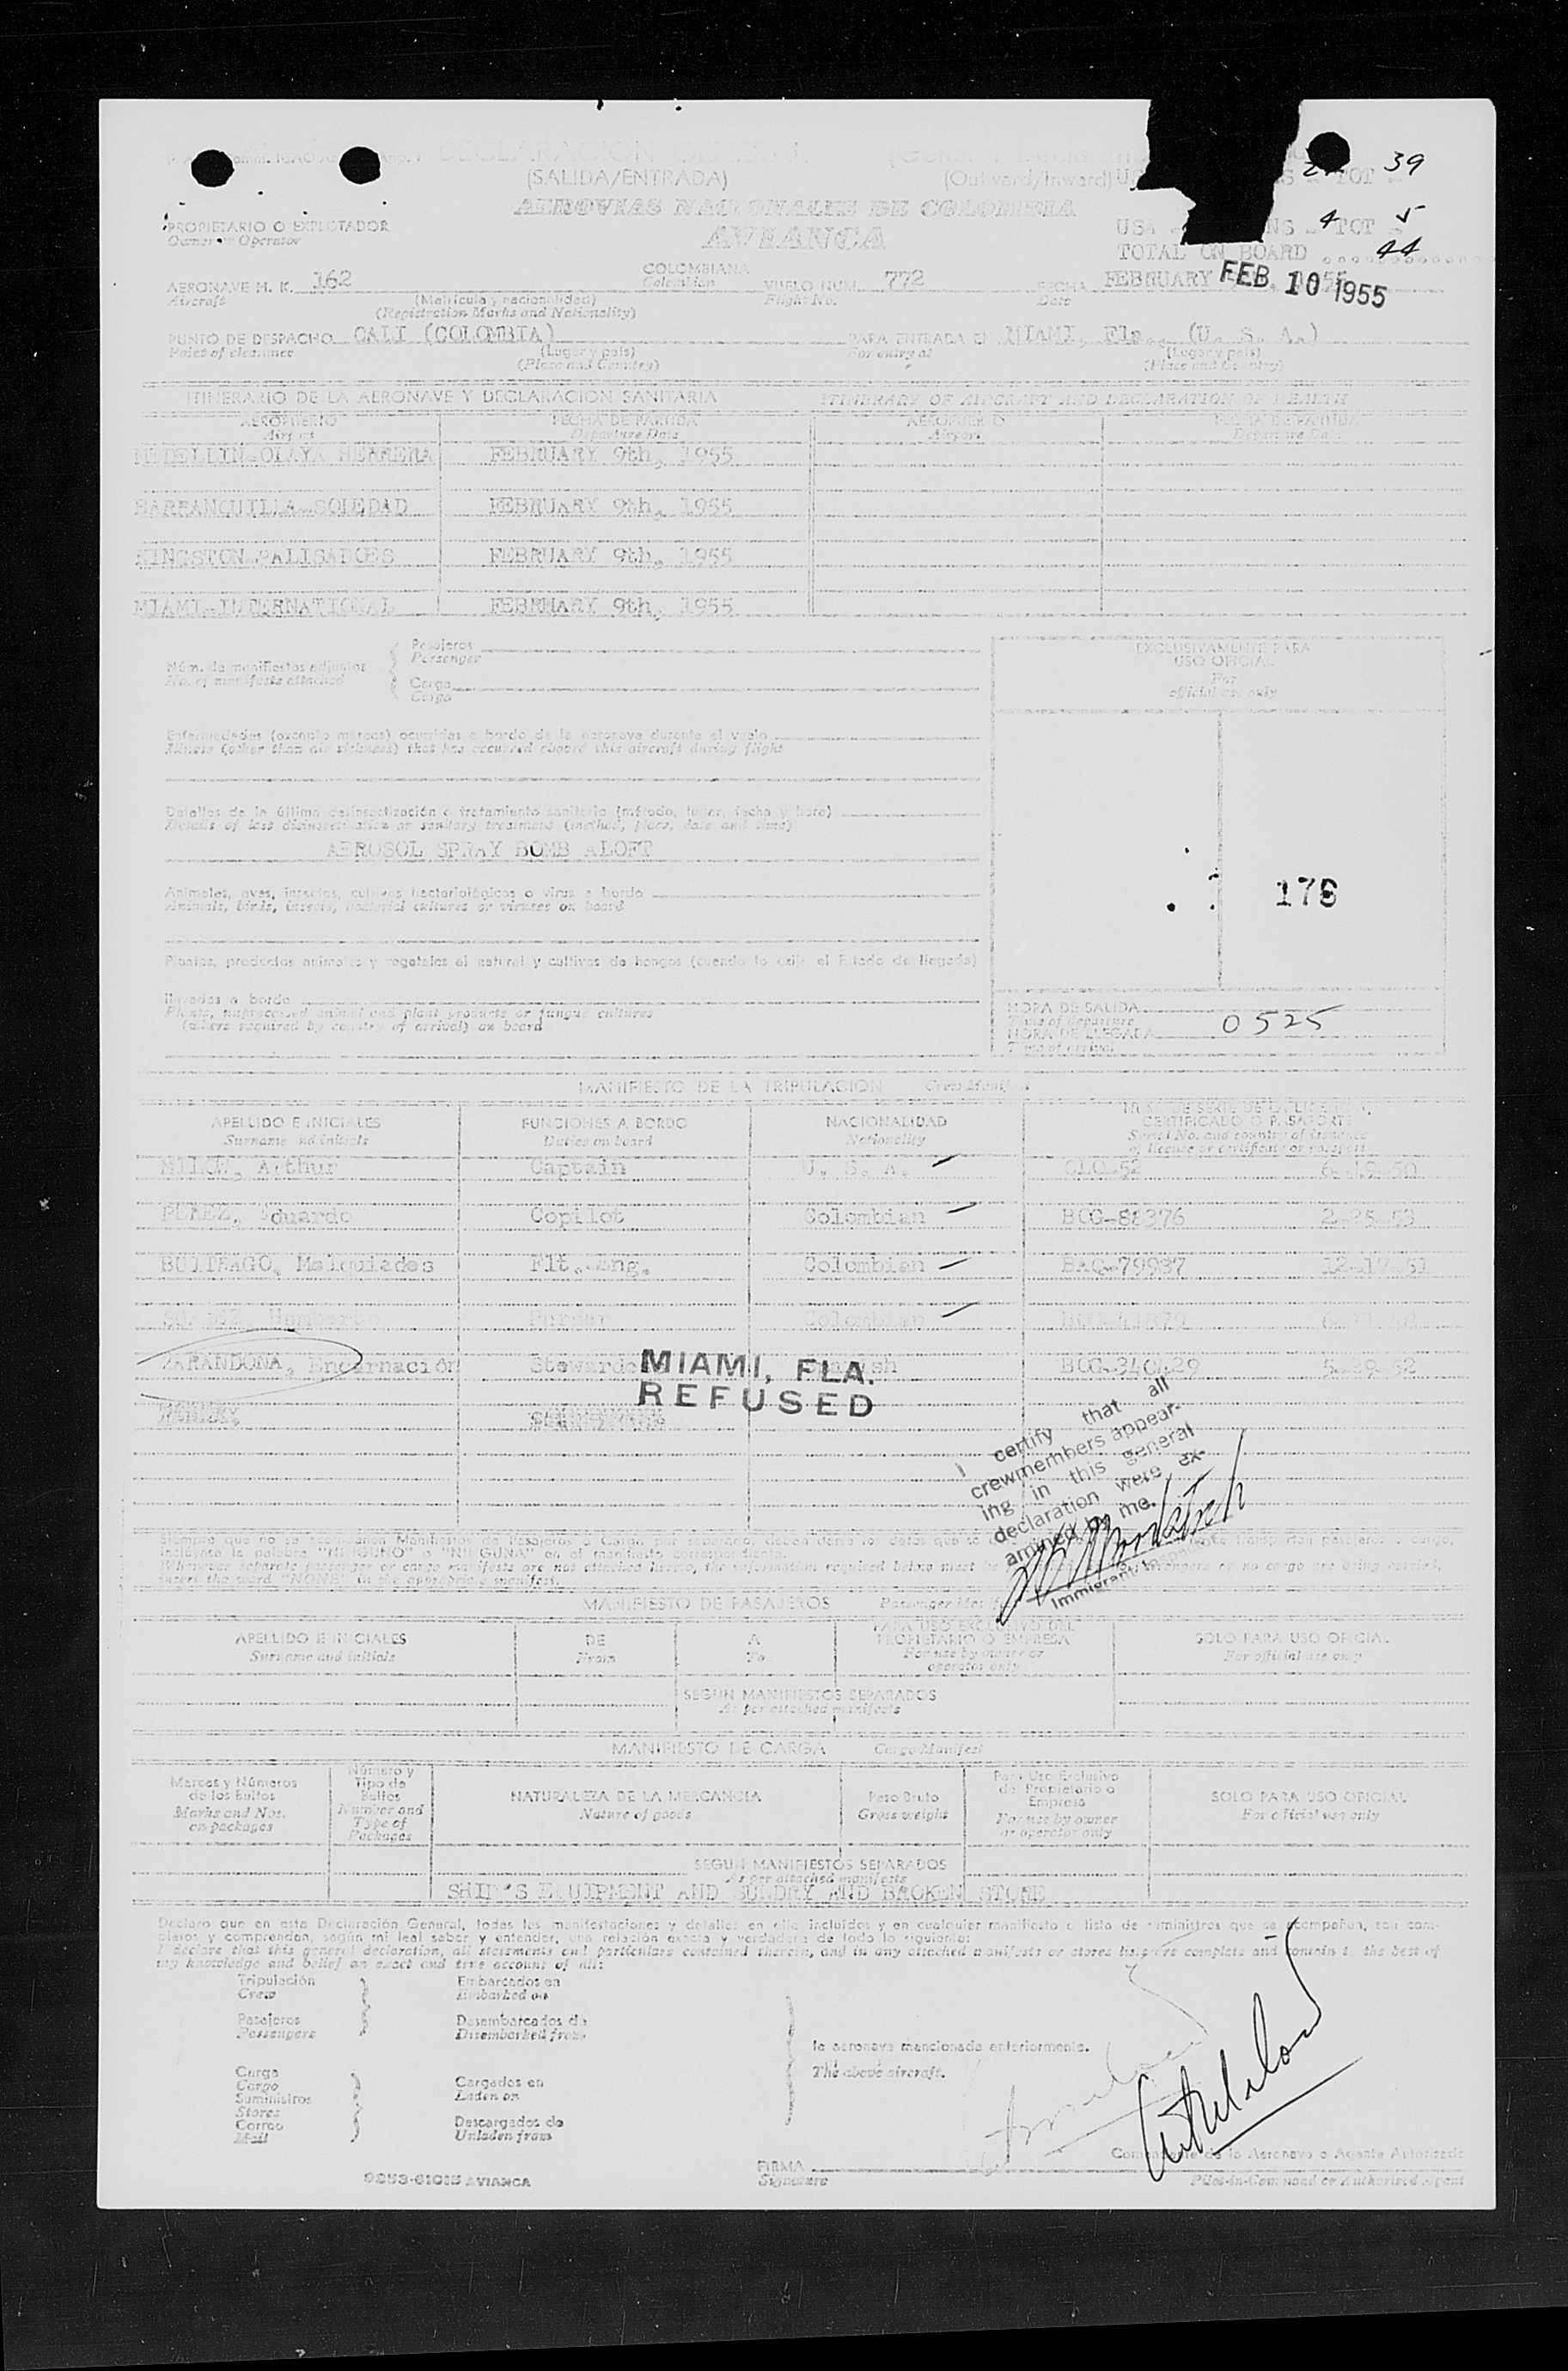 DECLARACION
(SALIDA/ENTRADA) (Outward/Inward)
39
TOT
AEROVIAS NACIONALES DE COLOMBIA
AVIANCA
PROPIETARIO O EXPLOTADOR
Owner or Operator
USA 4 TOT 5
TOTAL ON BOARD 44
AERONAVE H. K. 162 COLOMBIANA VUELO NUM. 772 FECHA FEBRUARY 1955
FEB 10 1955
Aircraft (Matrícula y nacionalidad) Colombian Flight No. Date
(Registration Marks and Nationality)
PUNTO DE DESPACHO CALI (COLOMBIA) PARA ENTRADA EN MIAMI, Fla., (U. S. A.)
Point of clearance (Lugar y país) For entry at (Lugar y país)
(Place and Country) (Place and Country)
ITINERARIO DE LA AERONAVE Y DECLARACION SANITARIA ITINERARY OF AIRCRAFT AND DECLARATION OF HEALTH
AEROPUERTO FECHA DE PARTIDA AEROPUERTO FECHA DE PARTIDA
Airport Departure Date Airport Departure Date
MEDELLIN-OLAYA HERRERA FEBRUARY 9th, 1955
BARRANQUILLA-SOLEDAD FEBRUARY 9th, 1955
KINGSTON-PALISADOES FEBRUARY 9th, 1955
MIAMI-INTERNATIONAL FEBRUARY 9th, 1955
Núm. de manifiestos adjuntos Pasajeros
No. of manifests attached Passenger
Carga
Cargo
EXCLUSIVAMENTE PARA
USO OFICIAL
For
official use only
Enfermedades (excepto mareos) ocurridas a bordo de la aeronave durante el vuelo
Illness (other than air sickness) that has occurred aboard this aircraft during flight
Detalles de la última desinsectización o tratamiento sanitario (método, lugar, fecha y hora)
Details of last disinsectization or sanitary treatment (method, place, date and time)
AEROSOL SPRAY BOMB ALOFT
Animales, aves, insectos, cultivos bacteriológicos o virus a bordo
Animals, birds, insects, bacterial cultures or viruses on board
178
Plantas, productos animales y vegetales al natural y cultivos de hongos (cuando lo exija el Estado de llegada)
llevados a bordo
Plants, unprocessed animal and plant products or fungus cultures
(where required by country of arrival) on board
HORA DE SALIDA
Time of departure
HORA DE LLEGADA 0525
Time of arrival
MANIFIESTO DE LA TRIPULACION Crew Manifest
APELLIDO E INICIALES FUNCIONES A BORDO NACIONALIDAD NUM. DE SERIE DE LA LICENCIA, CERTIFICADO O PASAPORTE
Surname and initials Duties on board Nationality Serial No. and country of issuance
of licence or certificate or passport
MILOW, Arthur Captain U. S. A. CLO-52 6-19-50
PEREZ, Eduardo Copilot Colombian BOG-88376 2-25-53
BUITRAGO, Melquiades Flt. Eng. Colombian BAQ-79937 12-17-51
Humberto Purser Colombian
ZARANDONA, Encarnación BOG-340429 5-29-52
MIAMI, FLA.
REFUSED
I certify that all
crewmembers appear-
ing in this general
declaration were ex-
amined by me.
Immigrant Inspector
MANIFIESTO DE PASAJEROS
APELLIDO E INICIALES DE A PARA USO EXCLUSIVO DEL PROPIETARIO O EMPRESA SOLO PARA USO OFICIAL
Surname and initials From To For use by owner or operator only For official use only
SEGUN MANIFIESTOS SEPARADOS
As per attached manifests
MANIFIESTO DE CARGA Cargo Manifest
Marcas y Números de los Bultos Número y Tipo de Bultos NATURALEZA DE LA MERCANCIA Peso Bruto Para Uso Exclusivo de Propietario o Empresa SOLO PARA USO OFICIAL
Marks and Nos. on packages Number and Type of Packages Nature of goods Gross weight For use by owner or operator only For official use only
SEGUN MANIFIESTOS SEPARADOS
As per attached manifests
SHIP'S EQUIPMENT AND SUNDRY AND BROKEN STORE
Declaro que en esta Declaración General, todas las manifestaciones y detalles en ella incluídos y en cualquier manifiesto o lista de suministros que se acompañan, son com-
pletos y comprenden, según mi leal saber y entender, una relación exacta y verdadera de todo lo siguiente:
I declare that this general declaration, all statements and particulars contained therein, and in any attached manifests or stores lists are complete and contain to the best of
my knowledge and belief an exact and true account of all:
Tripulación Embarcados en
Crew Embarked on
Pasajeros Desembarcados de
Passengers Disembarked from
la aeronave mencionada anteriormente.
The above aircraft.
Carga
Cargo Cargados en
Suministros Laden on
Stores
Correo Descargados de
Mail Unladen from
Comandante de la Aeronave o Agente Autorizado
FIRMA
Signature Pilot-in-Command or Authorized Agent
9853-61015 AVIANCA